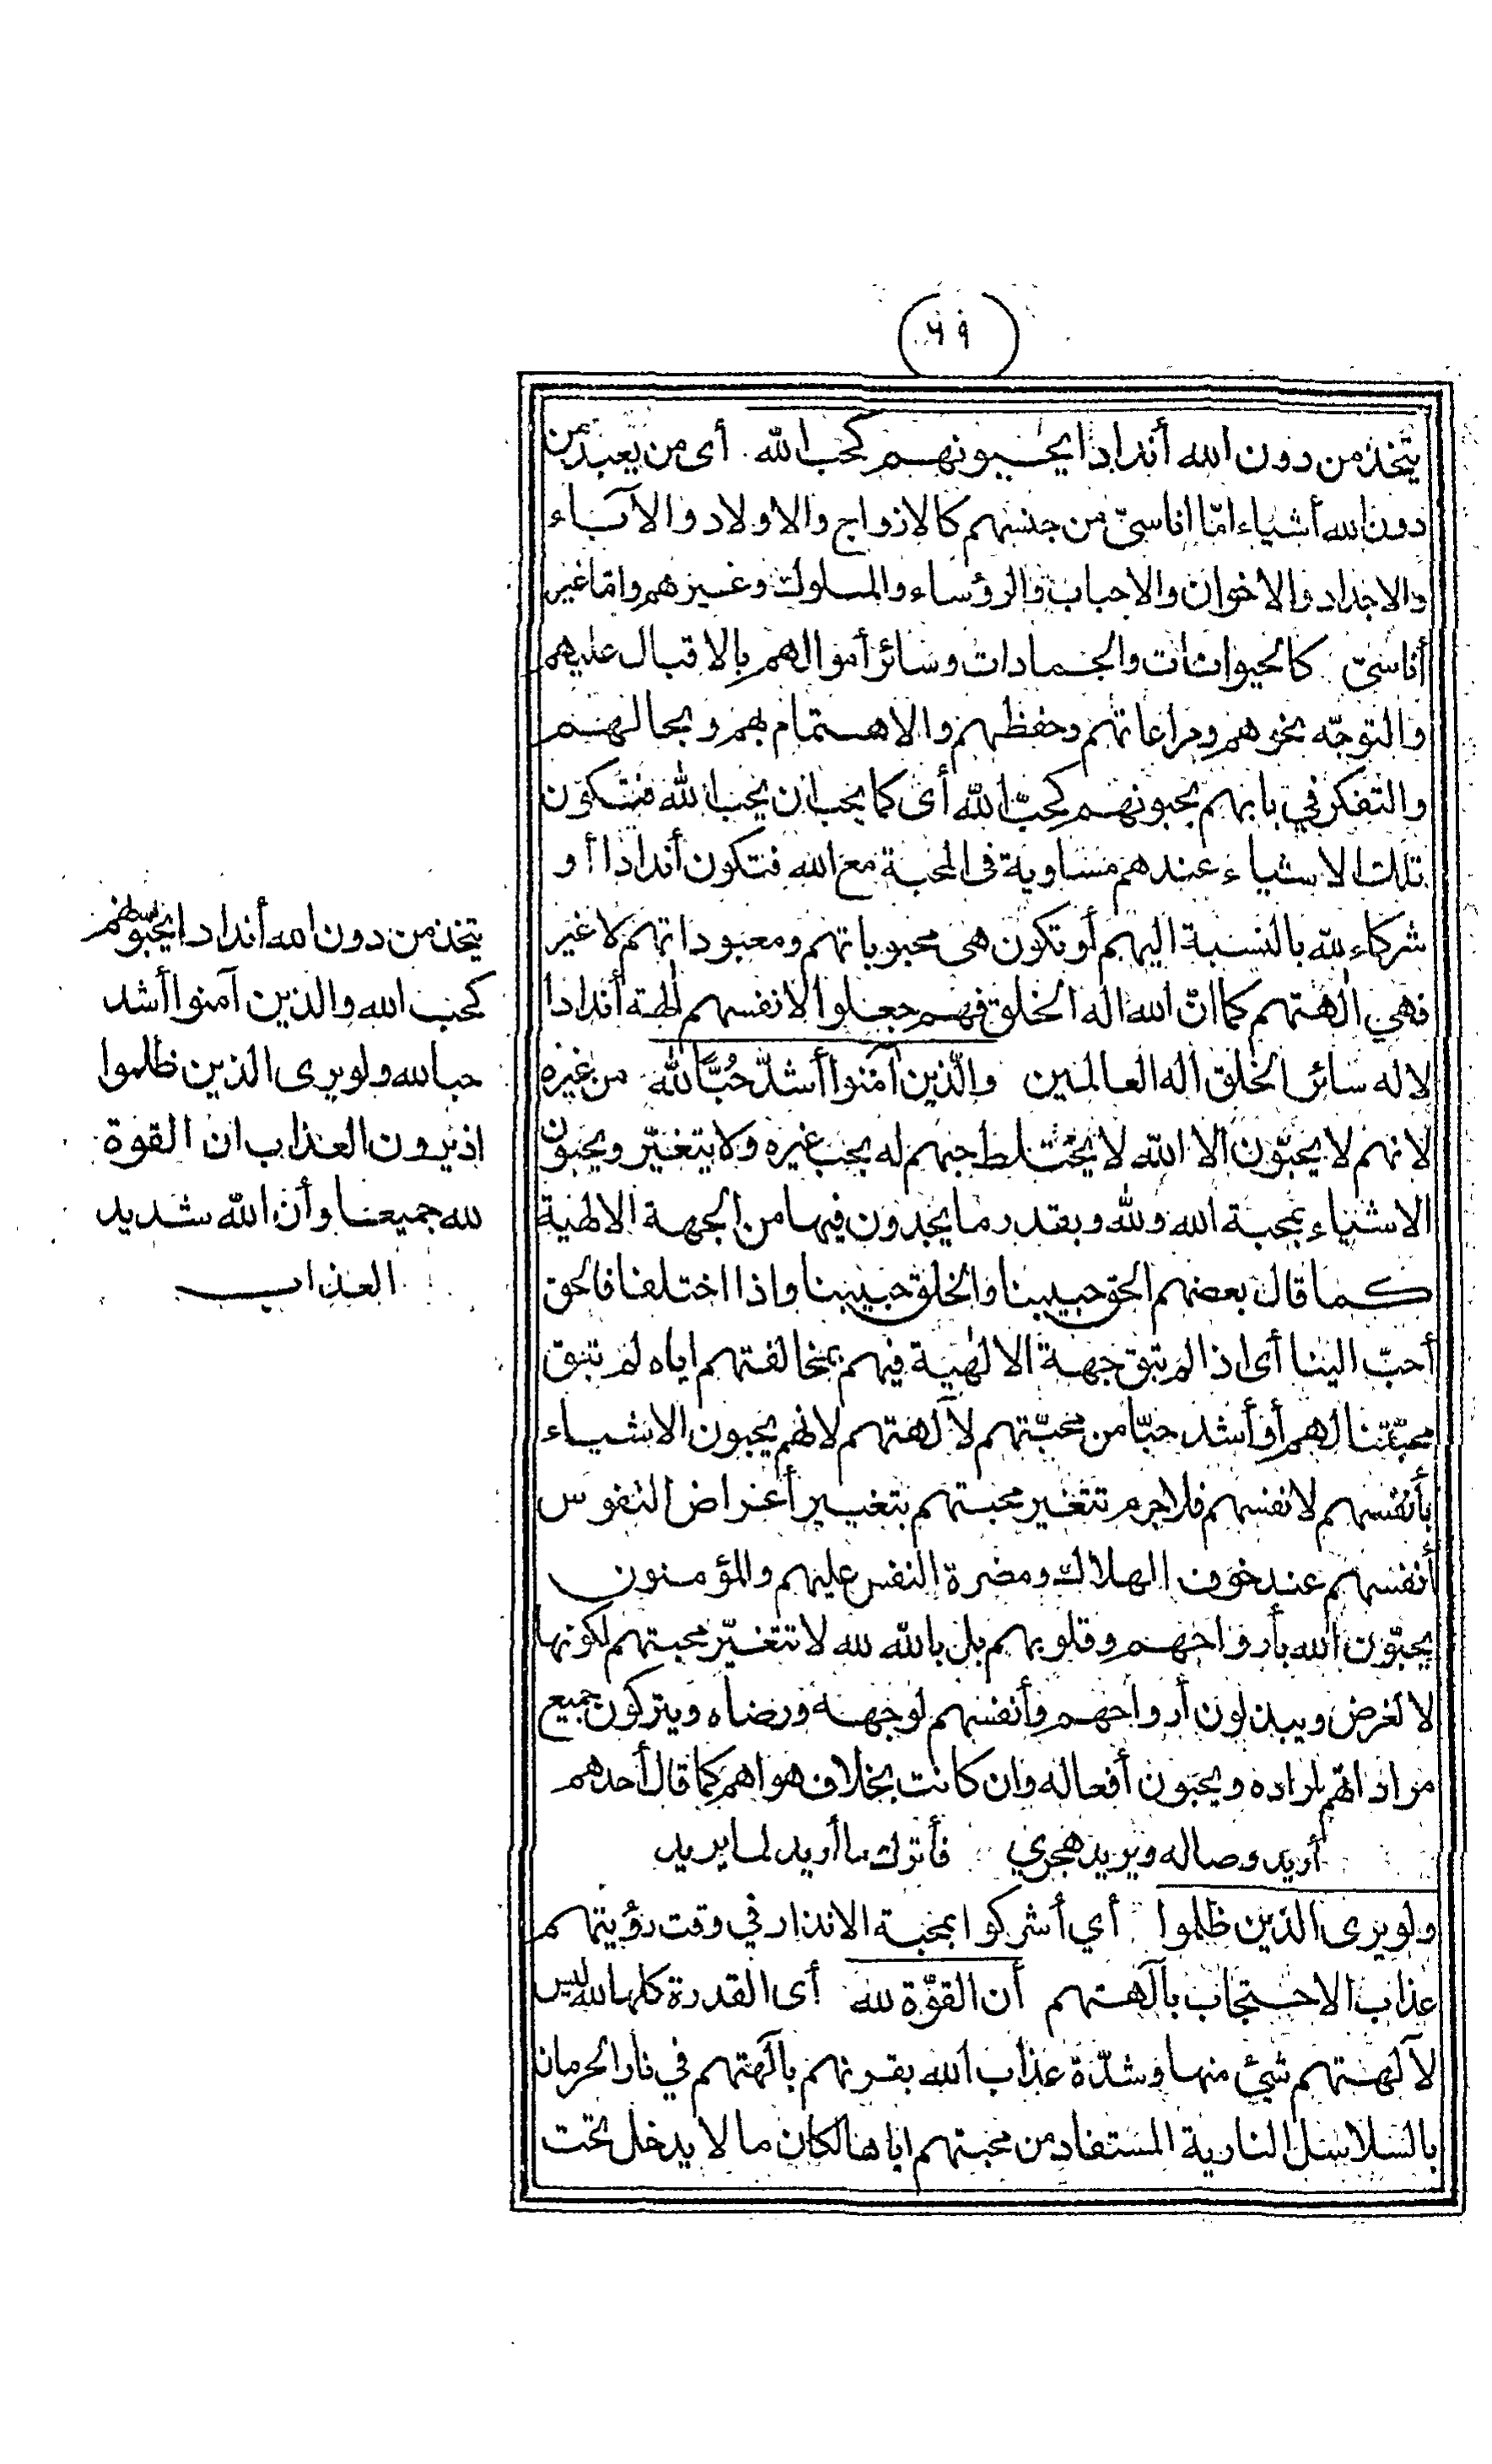 ٦٩
يتخذ من دون الله أندادا يحبونهم كحب الله أى من يعبد من
دون الله أشياء امّا اناسىّ من جنسهم كالازواج والاولاد والآباء
والاجداد والاخوان والاحباب والرؤساء والملوك وغيرهم وامّا غير
أناسىّ كالحيوانات والجمادات وسائر أموالهم بالاقبال عليهم
والتوجّه نحوهم ومراعاتهم وحفظهم والاهتمام بهم وبحالهم
والتفكر في بابهم يحبونهم كحبّ الله أى كما يجب ان يحب الله فتكون
تلك الاشياء عندهم مساوية فى المحبة مع الله فتكون أندادا أو
شركاء لله بالنسبة اليهم أو تكون هى محبوباتهم ومعبوداتهم لا غير
فهي الٰهتهم كما انّ الله اله الخلق فهم جعلوا لانفسهم الٰهة أندادا
لاله سائر الخلق اله العالمين والّذين آمنوا أشدّ حُبًّا لله من غيره
لانهم لا يحبّون الا الله لا يختلط حبهم له بحب غيره ولا يتغيّر ويحبون
الاشياء بمحبة الله ولله وبقدر ما يجدون فيها من الجهة الالٰهية
كما قال بعضهم الحق حبيبنا والخلق حبيبنا واذا اختلفا فالحق
أحبّ الينا أى اذا لم تبق جهة الالٰهية فيهم بمخالفتهم اياه لم تبق
محبّتنا لهم أو أشد حبّا من محبّتهم لآلهتهم لانهم يحبون الاشياء
بأنفسهم لانفسهم فلا جرم تتغير محبتهم بتغيير أعراض النفوس
أنفسهم عند خوف الهلاك ومضرة النفس عليهم والمؤمنون
يحبّون الله بأرواحهم وقلوبهم بل بالله لله لا تتغيّر محبتهم لكونها
لا لغرض ويبذلون أرواحهم وأنفسهم لوجهه ورضاه ويتركون جميع
مراداتهم لمراده ويحبون أفعاله وان كانت بخلاف هواهم كما قال أحدهم
أريد وصاله ويريد هجري فأترك ما أريد لما يريد
ولو يرى الذين ظلموا أي أشركوا بمحبة الانداد في وقت رؤيتهم
عذاب الاحتجاب بآلهتهم أن القوّة لله أى القدرة كلها لله ليس
لآلهتهم شئ منها وشدّة عذاب الله بقرنهم بآلهتهم في نار الحرمان
بالسلاسل النارية المستفاد من محبتهم اياها لكان ما لا يدخل تحت
يتخذ من دون الله أندادا يحبونهم
كحب الله والذين آمنوا أشد
حبا لله ولو يرى الذين ظلموا
اذ يرون العذاب ان القوة
لله جميعا وأن الله شديد
العذاب